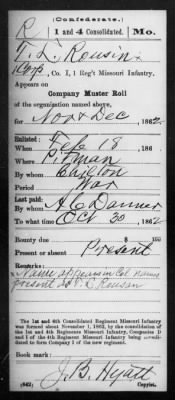 (Confederate.)
R 1 and 4 Consolidated. Mo.
T. L. Rousin
Corp, Co. I, 1 Reg't Missouri Infantry.
Appears on
Company Muster Roll
of the organization named above,
for Nov & Dec, 1862.
Enlisted:
When Feb 18 186
Where Pitman
By whom Carlton
Period War
Last paid:
By whom A C Danner
To what time Oct 30, 1862
Bounty due $ 100
Present or absent Present
Remarks:
Name appears in Col names
present as T. L. Rousan
The 1st and 4th Consolidated Regiment Missouri Infantry
was formed about November 1, 1862, by the consolidation of
the 1st and 4th Regiments Missouri Infantry, Companies D
and I of the 4th Regiment Missouri Infantry being consoli-
dated to form Company I of the new regiment.
Book mark:
J. B. Hyatt
(642) Copyist.